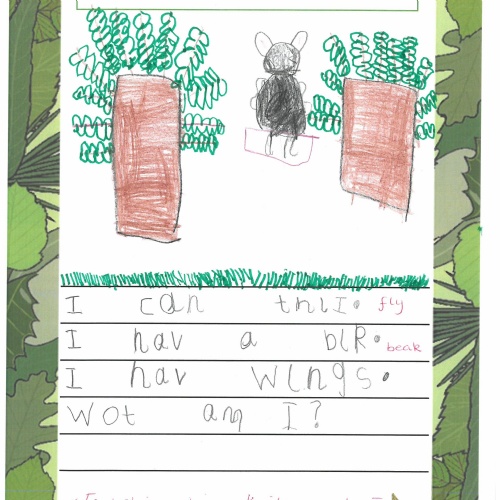 I can fly
I hav a blR. beak
I hav wings.
Wot am I?